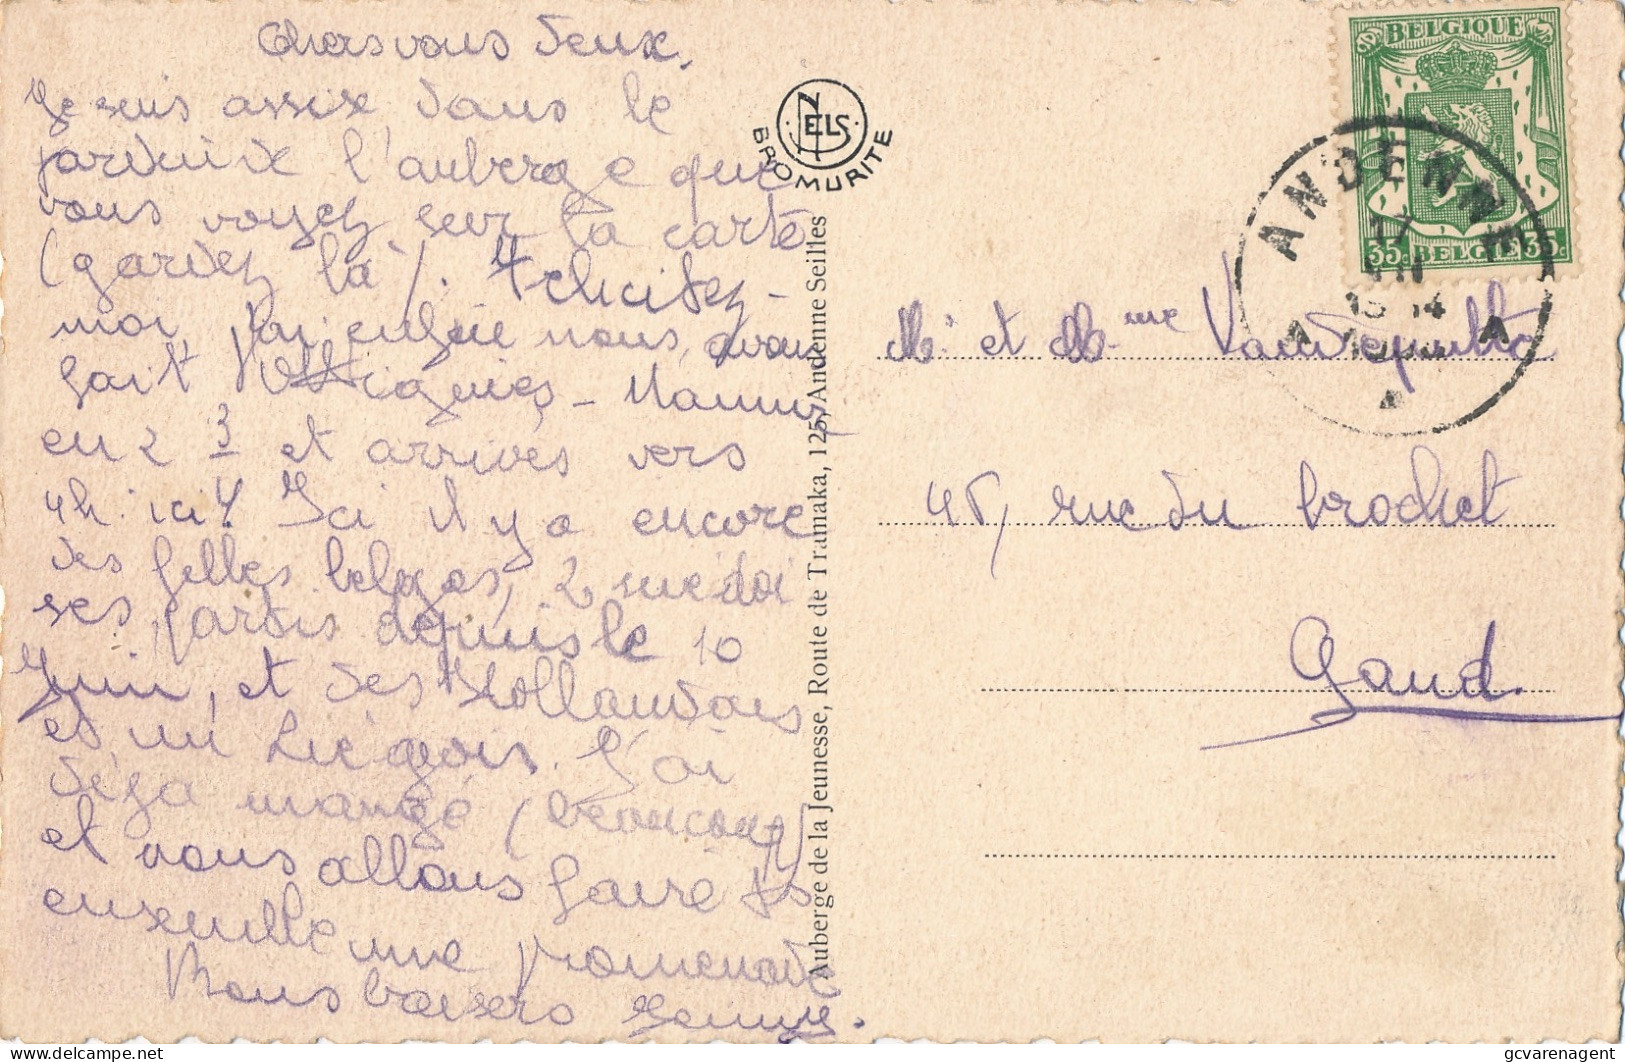 Chers vous deux,
Je suis assise dans le
jardin de l'auberge que
vous voyez sur la carte
(gardez la). Félicitez-
moi, nous, avons
fait Ottignies - Namur
en 2 3 et arrivés vers
4h. ici! Ici il y a encore
des filles belges, 2 suédoi
ses parties depuis le 10
Juin, et des Hollandais
et un Liégeois. J'ai
déjà mangé (beaucoup)
et nous allons faire ts
ensemble une promenade
Bons baisers Jenny.
NELS
BROMURITE
Auberge de la Jeunesse, Route de Tramaka, 125, Andenne Seilles
BELGIQUE
35c BELGIE 35c
ANDENNE
17
VII
13-14
A A
Mr et Mme
45, rue du brochet
Gand.
gcvarenagent
delcampe.net